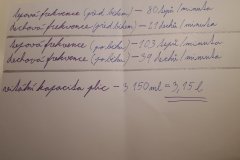 tepová frekvence (před během) – 80 tepů / minuta
dechová frekvence (před během) – 21 dechů / minuta
tepová frekvence (po běhu) – 103 tepů / minuta
dechová frekvence (po běhu) – 39 dechů / minuta
vitální kapacita plic – 3 150 ml = 3,15 l